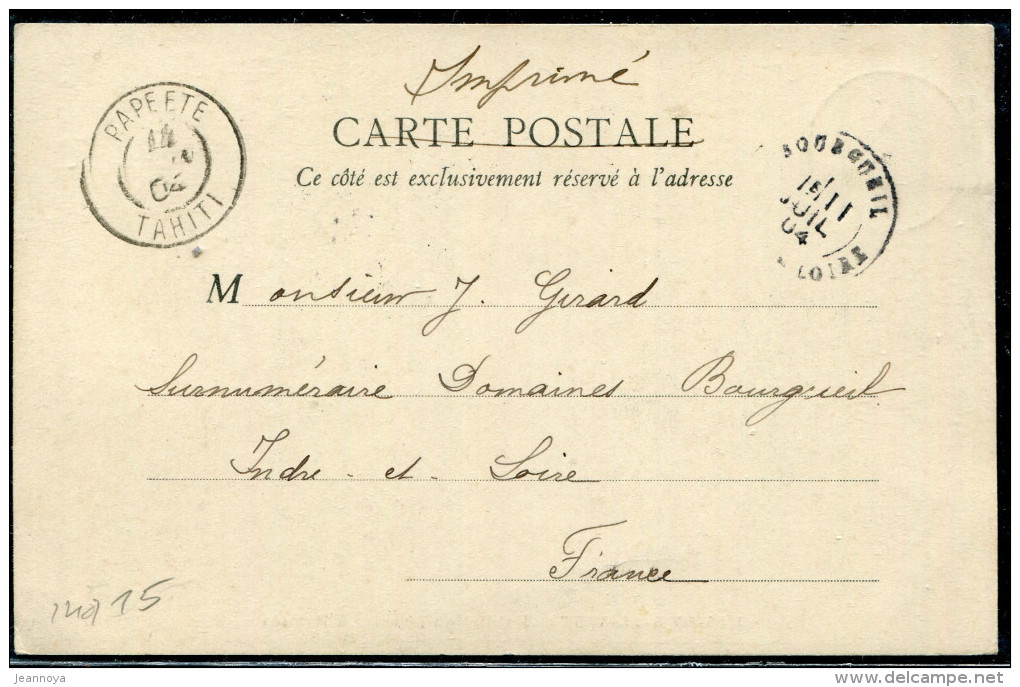 Imprimé
CARTE POSTALE
Ce côté est exclusivement réservé à l'adresse
PAPEETE
04
TAHITI
BOURGUEIL
11
JUIL
04
LOIRE
Monsieur J. Girard
Surnuméraire Domaines Bourgueil
Indre - et - Loire
France
15
jeannoya
delcampe.net